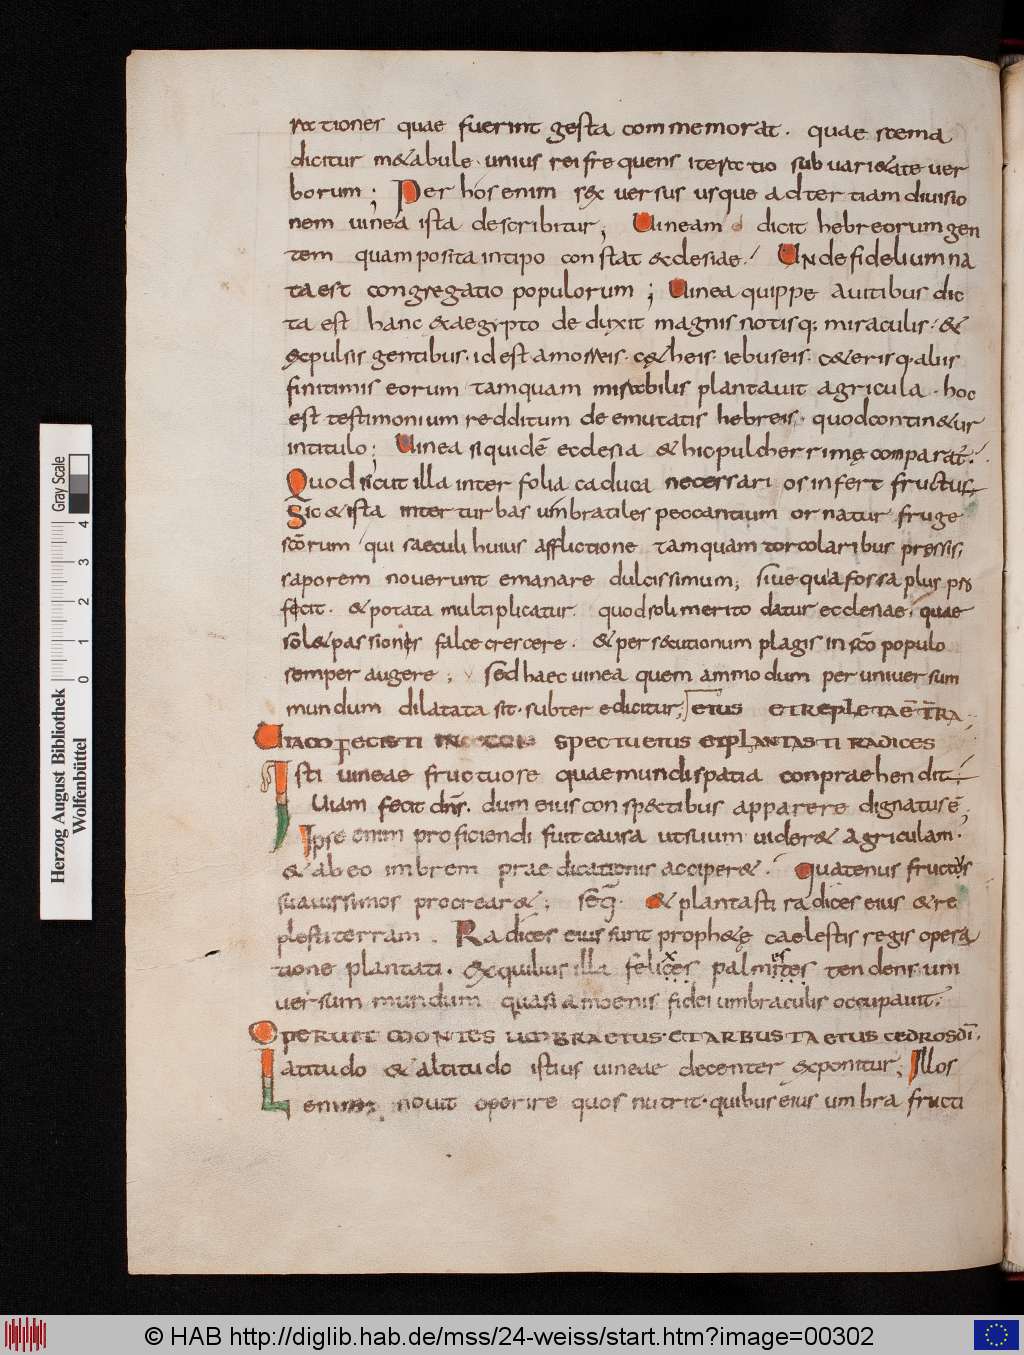 rationes quae fuerint gesta commemorat. quae scema
dicitur m&abule. unius rei frequens iteratio sub vari&ate ver
borum; Per hos enim sex versus usque ad tertiam divisio
nem vinea ista describitur; Uineam dicit hebreorum gen
tem quam posita in tipo constat &clesiae. Unde fidelium na
ta est congregatio populorum; Uinea quippe a vitibus dic
ta est hanc & aegypto deduxit magnis notisq; miraculis. &
expulsis gentibus. id est amorreis. c&heis. iebuseis. c&erisq. aliis
finitimis eorum tamquam mirabilis plantavit agricula. hoc
est testimonium redditum de emutatis hebreis. quod contin&ur
in titulo; Uinea siquidē ecclesia & hic pulcherrimę comparat.
Quod sicut illa inter folia caduca necessarios infert fructus.
Sic & ista inter turbas umbratiles peccantium ornatur fruge
scōrum qui saeculi huius afflictione tamquam torcolaribus pressis;
saporem noverunt emanare dulcissimum; sive qua fossa plus pro
fecit. & potata multiplicatur. quod soli merito datur ecclesiae. quae
sol& passiones falce crescere. & persecutionum plagis in scō populo
semper augere; sed haec vinea quemammodum per universum
mundum dilatata sit. subter edicitur; eius et repleta ē t̄ra
Uiam fecisti in conspectu eius et plantasti radices
Isti vineae fructuose quae mundi spatia conpraehendit.
Uiam fecit dn̄s. dum eius conspectibus apparere dignatus ē;
Ipse enim proficiendi fuit causa ut suum vider& agriculam.
& ab eo imbrem praedicationis acciper&. Quatenus fructus
suavissimos procrear&; seq̄. & plantasti radices eius & re
plesti terram. Radices eius sunt proph&ę caelestis regis opera
tione plantati. Ex quibus illa felices palmites tendens uni
versum mundum quasi amoenis fidei umbraculis occupavit.
Operuit montes umbra eius. et arbusta eius cedros dī.
Latitudo & altitudo istius vineae decenter exponitur; Illos
enim novit operire quos nutrit. quibus eius umbra fructi
Herzog August Bibliothek
Wolfenbüttel
0 1 2 3 4
Gray Scale
© HAB http://diglib.hab.de/mss/24-weiss/start.htm?image=00302